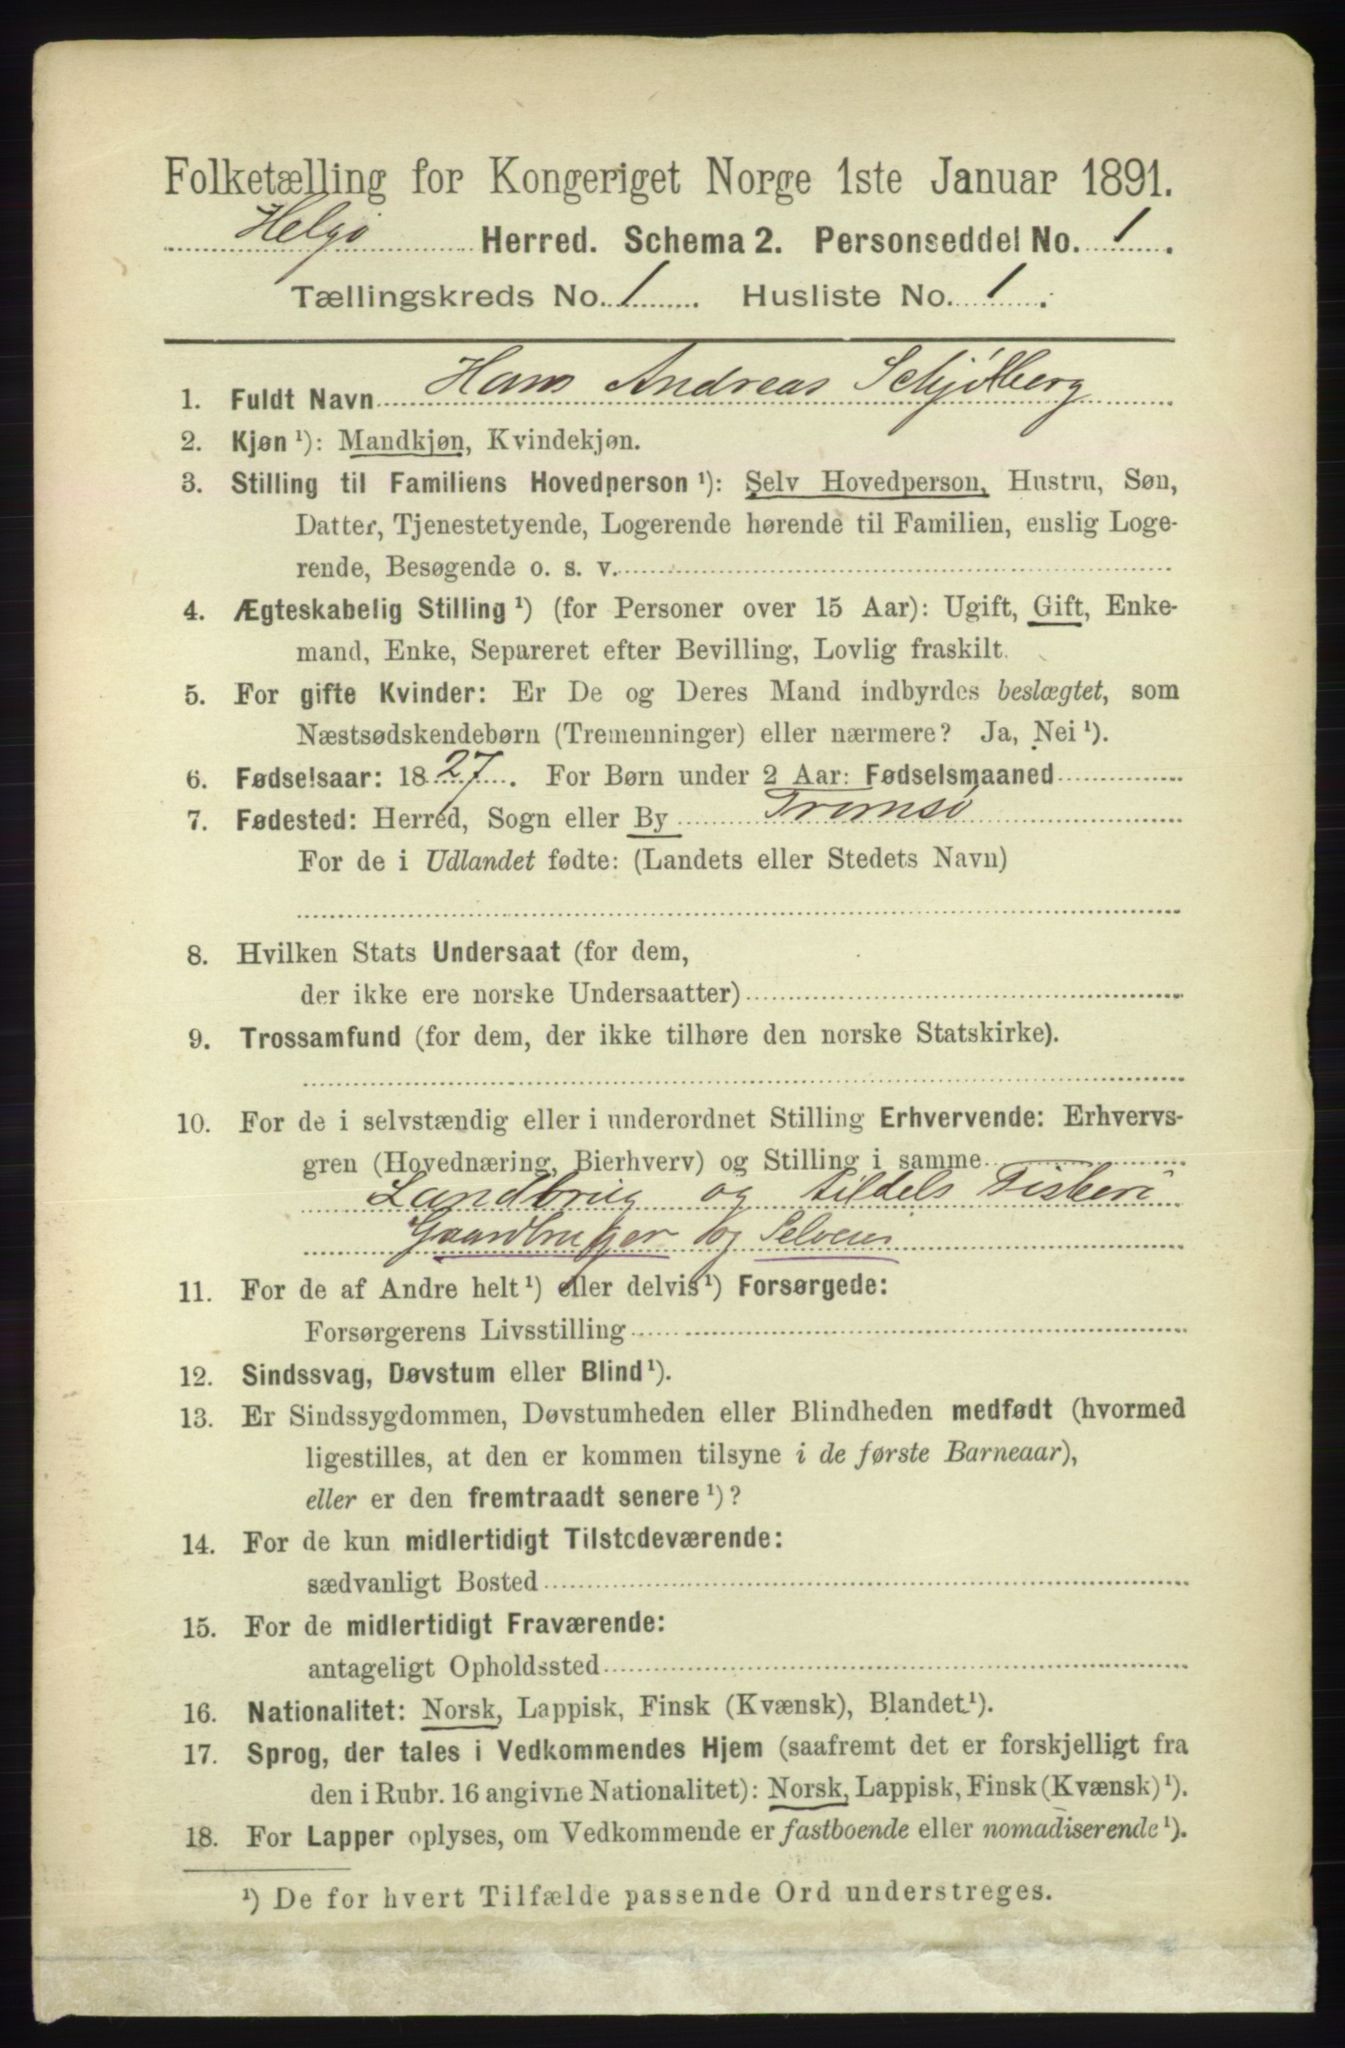 Folketælling for Kongeriget Norge 1ste Januar 1891.
Helgø Herred. Schema 2. Personseddel No. 1.
Tællingskreds No. 1. Husliste No. 1.
1. Fuldt Navn Hans Andreas Schjølberg
2. Kjøn ¹): Mandkjøn, Kvindekjøn.
3. Stilling til Familiens Hovedperson ¹): Selv Hovedperson, Hustru, Søn,
Datter, Tjenestetyende, Logerende hørende til Familien, enslig Loge-
rende, Besøgende o. s. v.
4. Ægteskabelig Stilling ¹) (for Personer over 15 Aar): Ugift, Gift, Enke-
mand, Enke, Separeret efter Bevilling, Lovlig fraskilt.
5. For gifte Kvinder: Er De og Deres Mand indbyrdes beslægtet, som
Næstsødskendebørn (Tremenninger) eller nærmere? Ja, Nei ¹).
6. Fødselsaar: 1827. For Børn under 2 Aar: Fødselsmaaned
7. Fødested: Herred, Sogn eller By Tromsø
For de i Udlandet fødte: (Landets eller Stedets Navn)
8. Hvilken Stats Undersaat (for dem,
der ikke ere norske Undersaatter)
9. Trossamfund (for dem, der ikke tilhøre den norske Statskirke).
10. For de i selvstændig eller i underordnet Stilling Erhvervende: Erhvervs-
gren (Hovednæring, Bierhverv) og Stilling i samme
Landbrug og tildels Fiskeri
Gaardbruger og Selveier
11. For de af Andre helt ¹) eller delvis ¹) Forsørgede:
Forsørgerens Livsstilling
12. Sindssvag, Døvstum eller Blind ¹).
13. Er Sindssygdommen, Døvstumheden eller Blindheden medfødt (hvormed
ligestilles, at den er kommen tilsyne i de første Barneaar),
eller er den fremtraadt senere ¹)?
14. For de kun midlertidigt Tilstedeværende:
sædvanligt Bosted
15. For de midlertidigt Fraværende:
antageligt Opholdssted
16. Nationalitet: Norsk, Lappisk, Finsk (Kvænsk), Blandet ¹).
17. Sprog, der tales i Vedkommendes Hjem (saafremt det er forskjelligt fra
den i Rubr. 16 angivne Nationalitet): Norsk, Lappisk, Finsk (Kvænsk) ¹).
18. For Lapper oplyses, om Vedkommende er fastboende eller nomadiserende ¹).
¹) De for hvert Tilfælde passende Ord understreges.